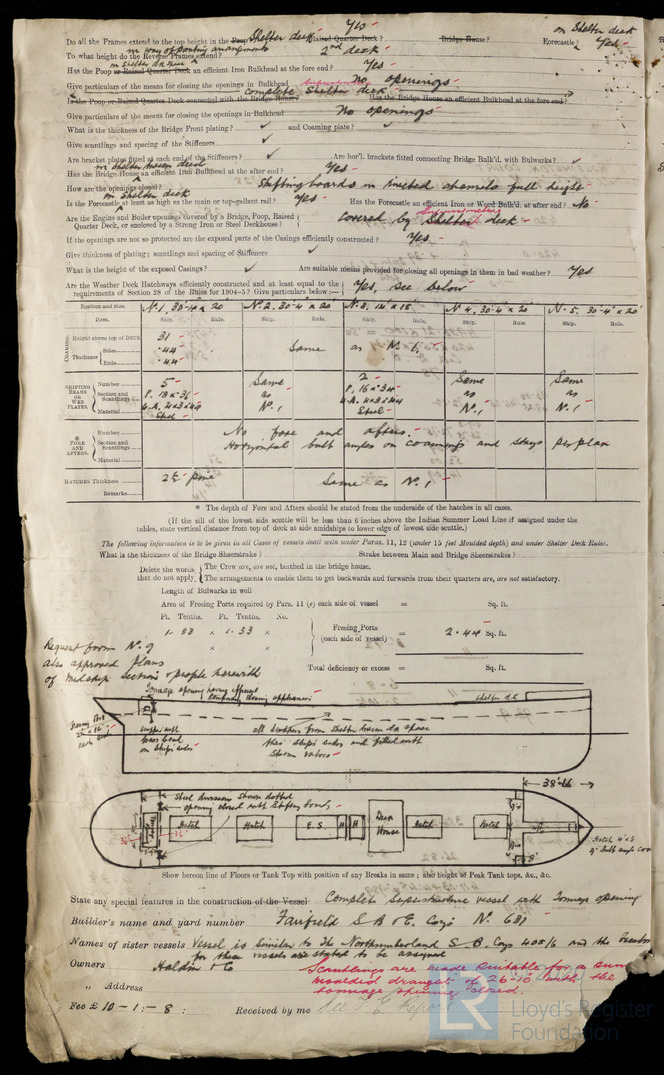 Yes
on Shelter deck
Do all the Frames extend to the top height in the Poop Shelter deck Raised Quarter Deck? Bridge House? Forecastle? Yes
in way of panting arrangements
To what height do the Reverse Frames extend? 2nd deck
in Shelter
Has the Poop or Raised Quarter Deck an efficient Iron Bulkhead at the fore end? Yes
Give particulars of the means for closing the openings in Bulkhead No openings.
complete Shelter deck
Is the Poop or Raised Quarter Deck connected with the Bridge House? Has the Bridge House an efficient Bulkhead at the fore end?
Give particulars of the means for closing the openings in Bulkhead No openings
What is the thickness of the Bridge Front plating? and Coaming plate?
Give scantlings and spacing of the Stiffeners
Are bracket plates fitted at each end of the Stiffeners? Are hor'l. brackets fitted connecting Bridge Bulk'd, with Bulwarks?
Has the Bridge House an efficient Iron Bulkhead at the after end? Yes
How are the openings closed? Shifting boards in riveted channels full height
on Shelter deck
Is the Forecastle at least as high as the main or top-gallant rail? Yes Has the Forecastle an efficient Iron or Wood Bulk'd. at after end? No
Are the Engine and Boiler openings covered by a Bridge, Poop, Raised Quarter Deck, or enclosed by a Strong Iron or Steel Deckhouse? Covered by Shelter deck
If the openings are not so protected are the exposed parts of the Casings efficiently constructed? Yes
Give thickness of plating; scantlings and spacing of Stiffeners
What is the height of the exposed Casings? Are suitable means provided for closing all openings in them in bad weather? Yes
Are the Weather Deck Hatchways efficiently constructed and at least equal to the requirements of Section 28 of the Rules for 1904-5? Give particulars below:— Yes, see below
Position and Size. No 1. 30-4 x 20 No 2. 30-4 x 20 No 3. 14 x 18 No 4. 30-4 x 20 No 5. 30-4 x 20
Item. Ship. Rule. Ship. Rule. Ship. Rule. Ship. Rule. Ship. Rule.
COAMING
Height above top of DECK 31
Thickness Sides .44 Same as No 1.
Ends .44
SHIFTING BEAMS OR WEB PLATES
Number 5 Same 2 Same Same
Section and Scantlings as P. 16 x 34 as as
Material Steel No 1 Steel No 1 No 1
* FORE AND AFTERS.
Number No fore and afters.
Section and Scantlings Horizontal bulb angles on coamings and stays per plan
Material
HATCHES Thickness 2½ pine Same as No 1
Remarks
* The depth of Fore and Afters should be stated from the underside of the hatches in all cases.
(If the sill of the lowest side scuttle will be less than 6 inches above the Indian Summer Load Line if assigned under the
tables, state vertical distance from top of deck at side amidships to lower edge of lowest side scuttle.)
The following information is to be given in all Cases of vessels dealt with under Paras. 11, 12 (under 15 feet Moulded depth) and under Shelter Deck Rules.
What is the thickness of the Bridge Sheerstrake? Strake between Main and Bridge Sheerstrakes?
Delete the words that do not apply.
The Crew are, are not, berthed in the bridge house.
The arrangements to enable them to get backwards and forwards from their quarters are, are not satisfactory.
Length of Bulwarks in well
Area of Freeing Ports required by Para. 11 (e) each side of vessel = Sq. ft.
Ft. Tenths. Ft. Tenths. No.
1.83 x 1.33 x Freeing Ports (each side of vessel) = 2.44 Sq. ft.
x x
Total deficiency or excess = Sq. ft.
Request form No. 9
also approved plans
of midship section & profile herewith
Tonnage opening having efficient
temporary closing appliances
Shelter dk
all scuppers from Shelter tween dk space
thro' ship's sides and fitted with
Storm valves
38'-16
Steel divisions shown dotted
opening closed with Shifting boards
Hatch Hatch E.S. H Deck House Hatch Hatch
Show hereon line of Floors or Tank Top with position of any Breaks in same; also height of Peak Tank tops, &c., &c.
State any special features in the construction of the Vessel Complete Superstructure vessel with Tonnage opening
Builder's name and yard number Fairfield S B & E. Coy's No. 681
Names of sister vessels Vessel is similar to the Northumberland S B. Coys 405/6 and the
for these vessels are stated to be assigned
Owners Haldin & Co
Scantlings are made suitable for a
moulded draught of 26-10 with the
tonnage opening closed.
„ Address
Fee £ 10-1:-8: Received by me See F. E. Report
LR
Lloyd's Register
Foundation